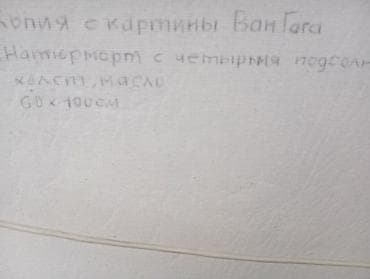 Копия с картины ВанГога
Натюрморт с четырьмя подсолн
холст, масло
60 х 100см